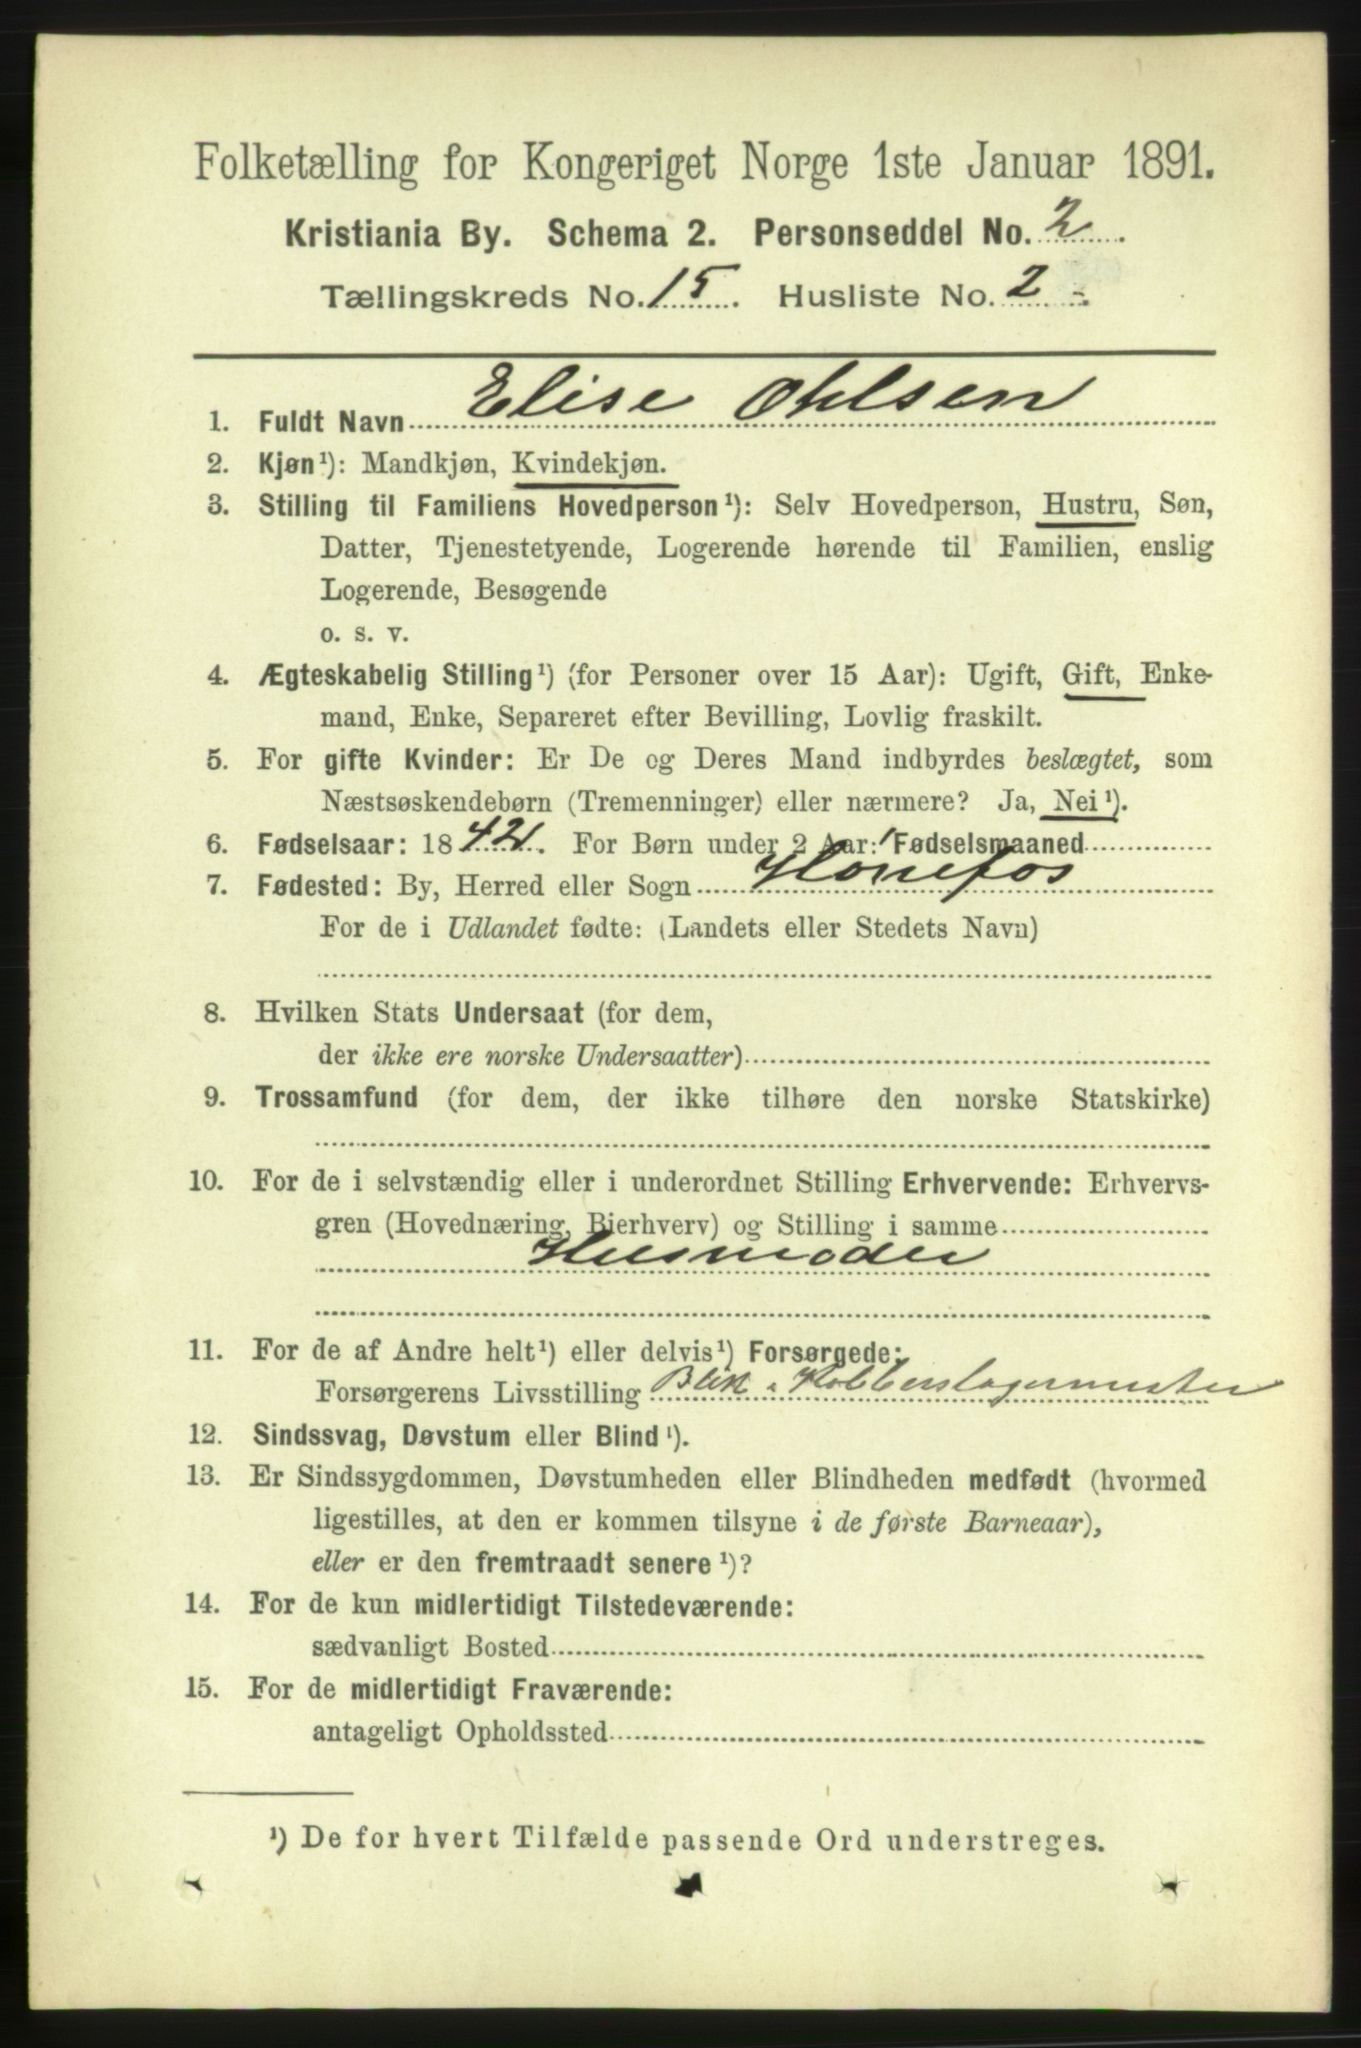 Folketælling for Kongeriget Norge 1ste Januar 1891.
Kristiania By. Schema 2. Personseddel No. 2.
Tællingskreds No. 15. Husliste No. 2.
1. Fuldt Navn Elise Ohlsen
2. Kjøn¹): Mandkjøn, Kvindekjøn.
3. Stilling til Familiens Hovedperson¹): Selv Hovedperson, Hustru, Søn,
Datter, Tjenestetyende, Logerende hørende til Familien, enslig
Logerende, Besøgende
o. s. v.
4. Ægteskabelig Stilling¹) (for Personer over 15 Aar): Ugift, Gift, Enke-
mand, Enke, Separeret efter Bevilling, Lovlig fraskilt.
5. For gifte Kvinder: Er De og Deres Mand indbyrdes beslægtet, som
Næstsøskendebørn (Tremenninger) eller nærmere? Ja, Nei¹).
6. Fødselsaar: 1842. For Børn under 2 Aar: Fødselsmaaned
7. Fødested: By, Herred eller Sogn Hønefos
For de i Udlandet fødte: (Landets eller Stedets Navn)
8. Hvilken Stats Undersaat (for dem,
der ikke ere norske Undersaatter)
9. Trossamfund (for dem, der ikke tilhøre den norske Statskirke)
10. For de i selvstændig eller i underordnet Stilling Erhvervende: Erhvervs-
gren (Hovednæring, Bierhverv) og Stilling i samme
Husmoder
11. For de af Andre helt¹) eller delvis¹) Forsørgede:
Forsørgerens Livsstilling Blik & Kobberslagermester
12. Sindssvag, Døvstum eller Blind¹).
13. Er Sindssygdommen, Døvstumheden eller Blindheden medfødt (hvormed
ligestilles, at den er kommen tilsyne i de første Barneaar),
eller er den fremtraadt senere¹)?
14. For de kun midlertidigt Tilstedeværende:
sædvanligt Bosted
15. For de midlertidigt Fraværende:
antageligt Opholdssted
¹) De for hvert Tilfælde passende Ord understreges.